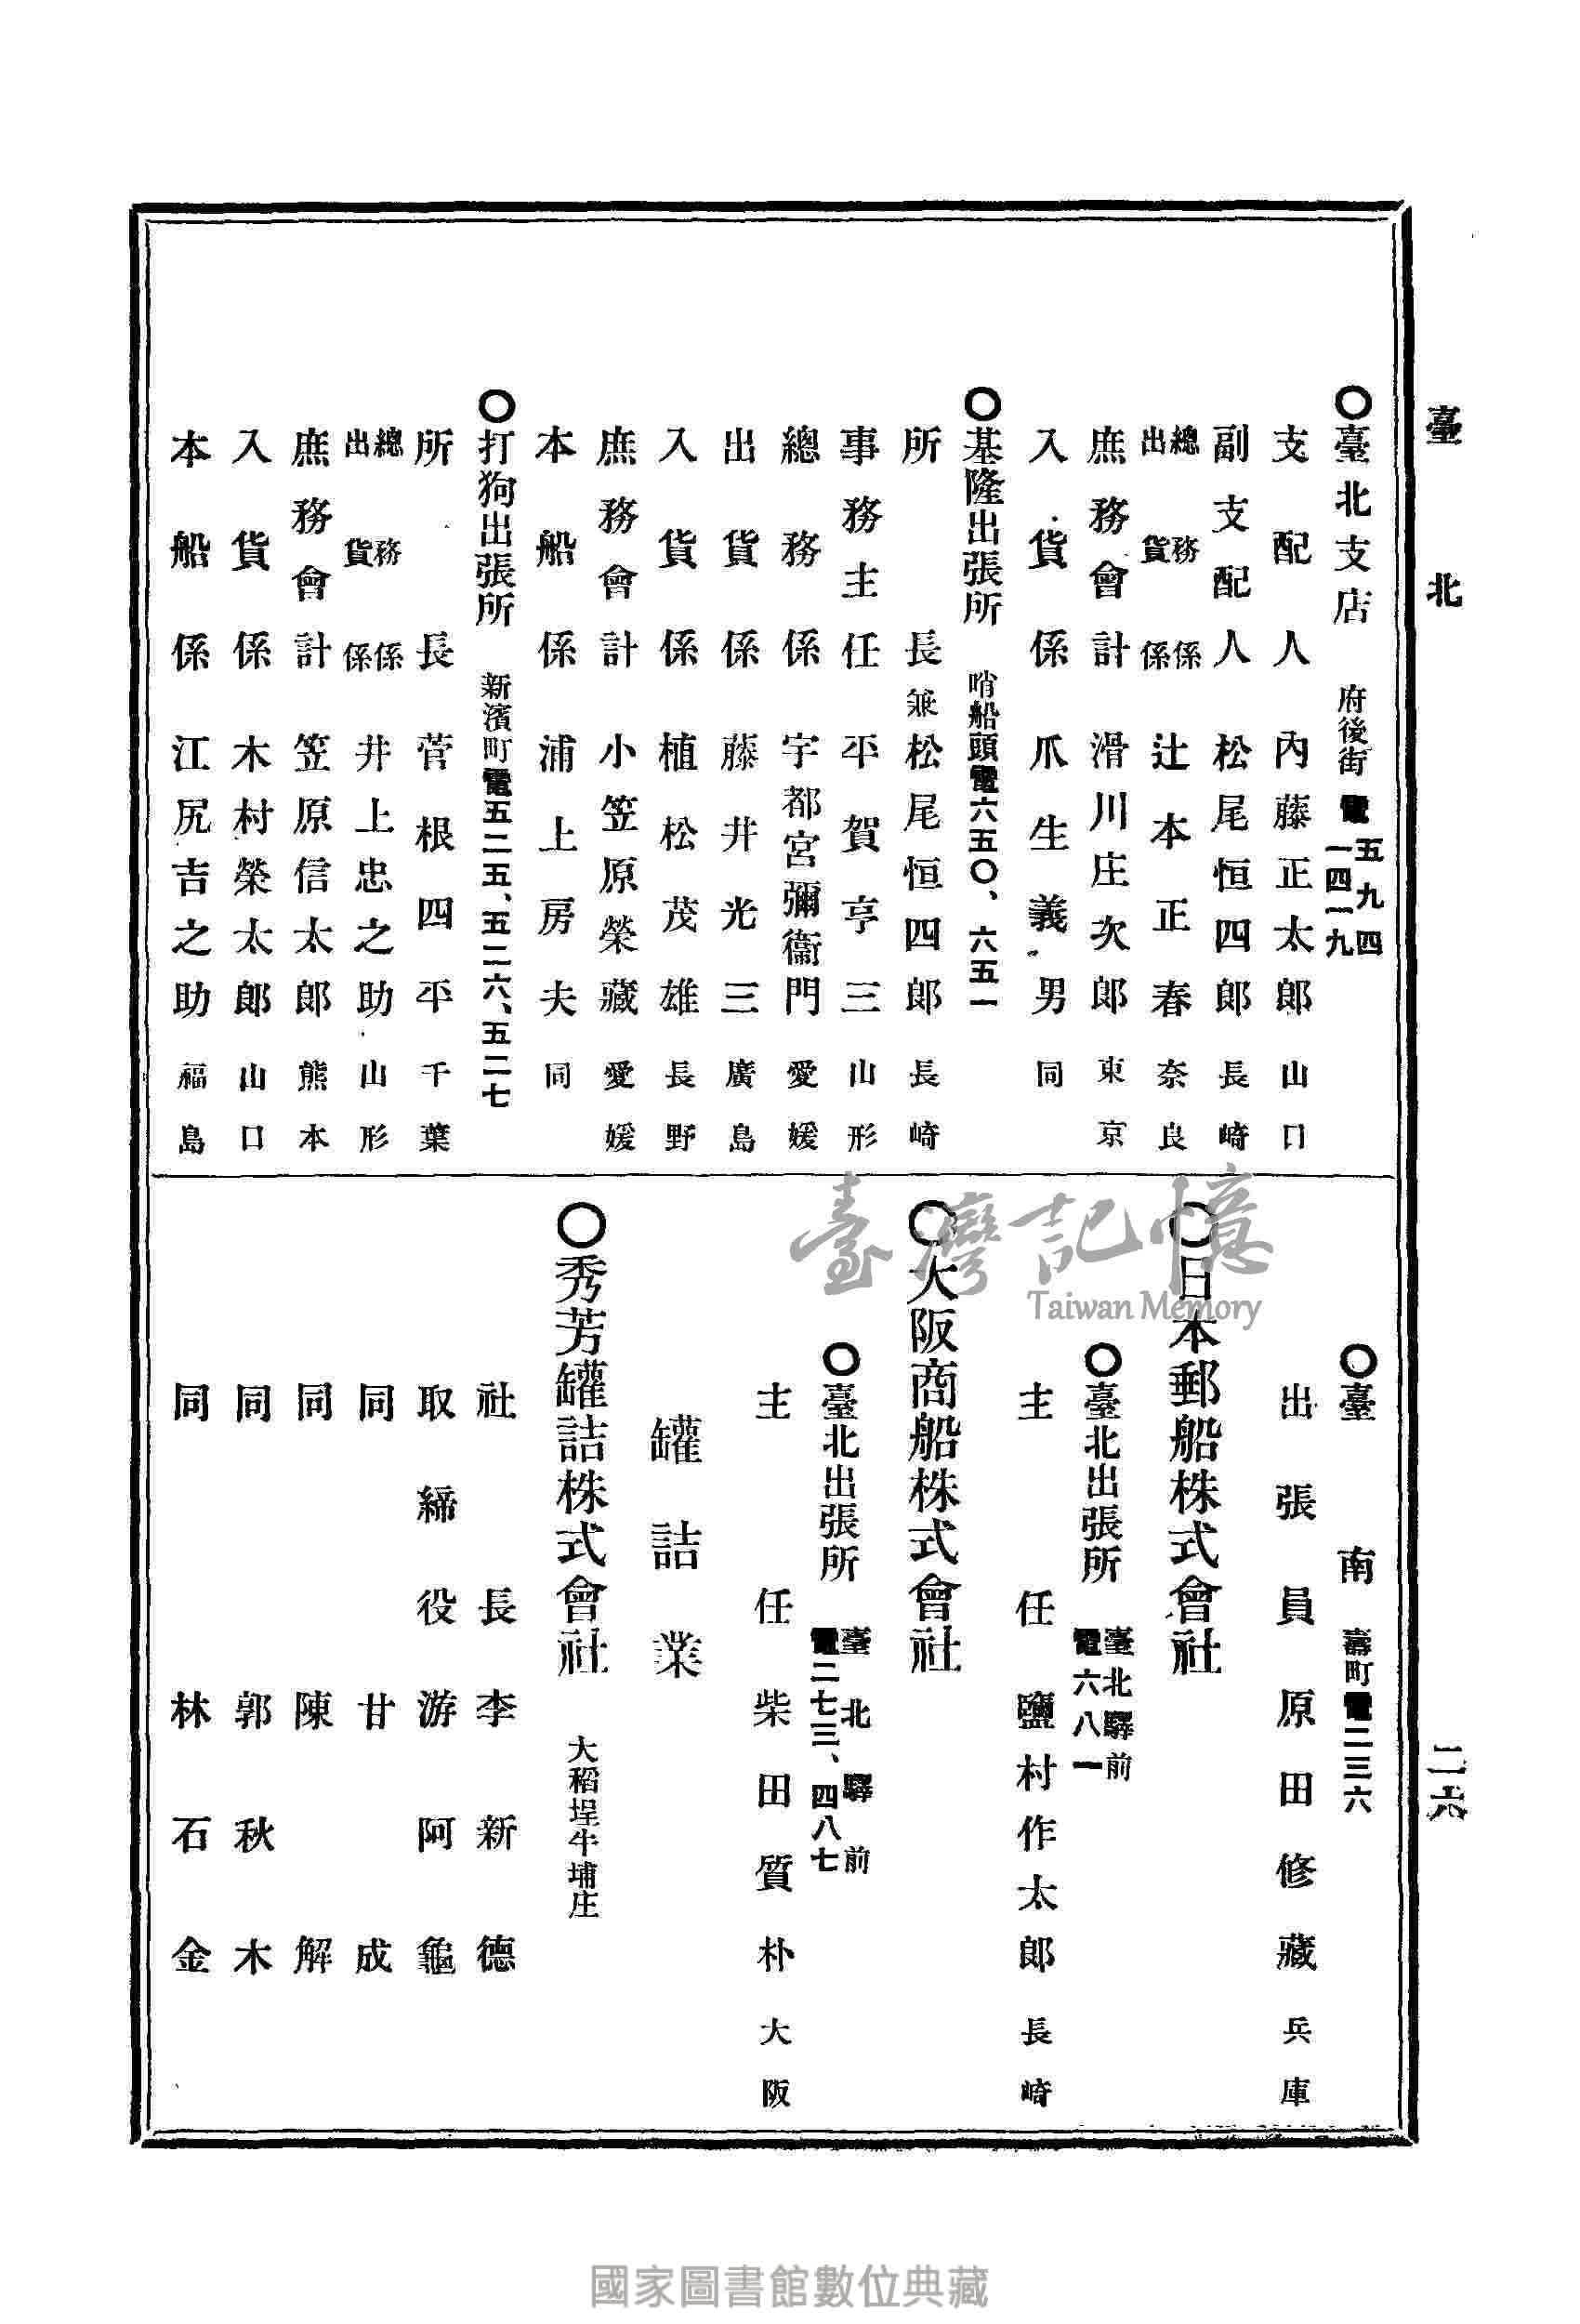 臺北
二六
〇臺北支店 府後街 電 五九四 一四一九
支配人 內藤正太郎 山口
副支配人 松尾恒四郎 長崎
總務係 出貨係 辻本正春 奈良
庶務會計 滑川庄次郎 東京
入貨係 爪生義男 同
〇基隆出張所 哨船頭電六五〇、六五一
所長 兼 松尾恒四郎 長崎
事務主任 平賀亨三 山形
總務係 宇都宮彌衞門 愛媛
出貨係 藤井光三 廣島
入貨係 植松茂雄 長野
庶務會計 小笠原榮藏 愛媛
本船係 浦上房夫 同
〇打狗出張所 新濱町電五二五、五二六、五二七
所長 菅根四平 千葉
總務係 出貨係 井上忠之助 山形
庶務會計 笠原信太郎 熊本
入貨係 木村榮太郎 山口
本船係 江尻吉之助 福島
〇臺南 壽町電二三六
出張員 原田修藏 兵庫
〇日本郵船株式會社
〇臺北出張所 臺北驛前 電六八一
主任 鹽村作太郎 長崎
〇大阪商船株式會社
〇臺北出張所 臺北驛前 電二七三、四八七
主任 柴田質朴 大阪
罐詰業
〇秀芳罐詰株式會社 大稻埕牛埔庄
社長 李新德
取締役 游阿龜
同 甘成
同 陳解
同 郭秋木
同 林石金
臺灣記憶
Taiwan Memory
國家圖書館數位典藏